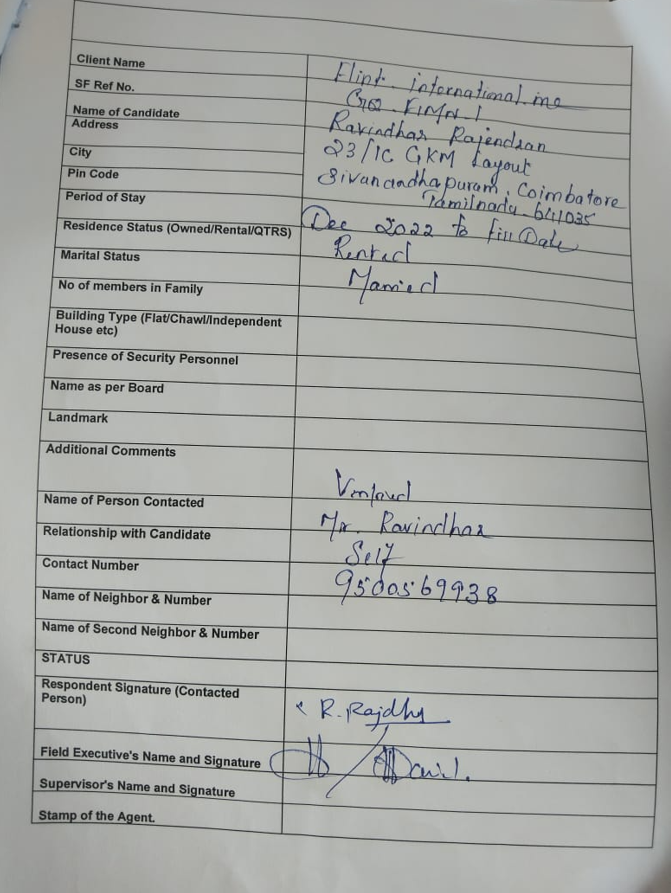 Client Name
Flint international inc
SF Ref No.
Name of Candidate
Ravindhar Rajendran
Address
23/1C GKM Layout
City
Sivanandhapuram, Coimbatore
Pin Code
Tamilnadu - 641035
Period of Stay
Dec 2022 to Till Date
Residence Status (Owned/Rental/QTRS)
Rented
Marital Status
Married
No of members in Family
Building Type (Flat/Chawl/Independent
House etc)
Presence of Security Personnel
Name as per Board
Landmark
Additional Comments
Name of Person Contacted
Mr. Ravindhar
Relationship with Candidate
Self
Contact Number
9500569938
Name of Neighbor & Number
Name of Second Neighbor & Number
STATUS
Respondent Signature (Contacted
Person)
Field Executive's Name and Signature
Supervisor's Name and Signature
Stamp of the Agent.